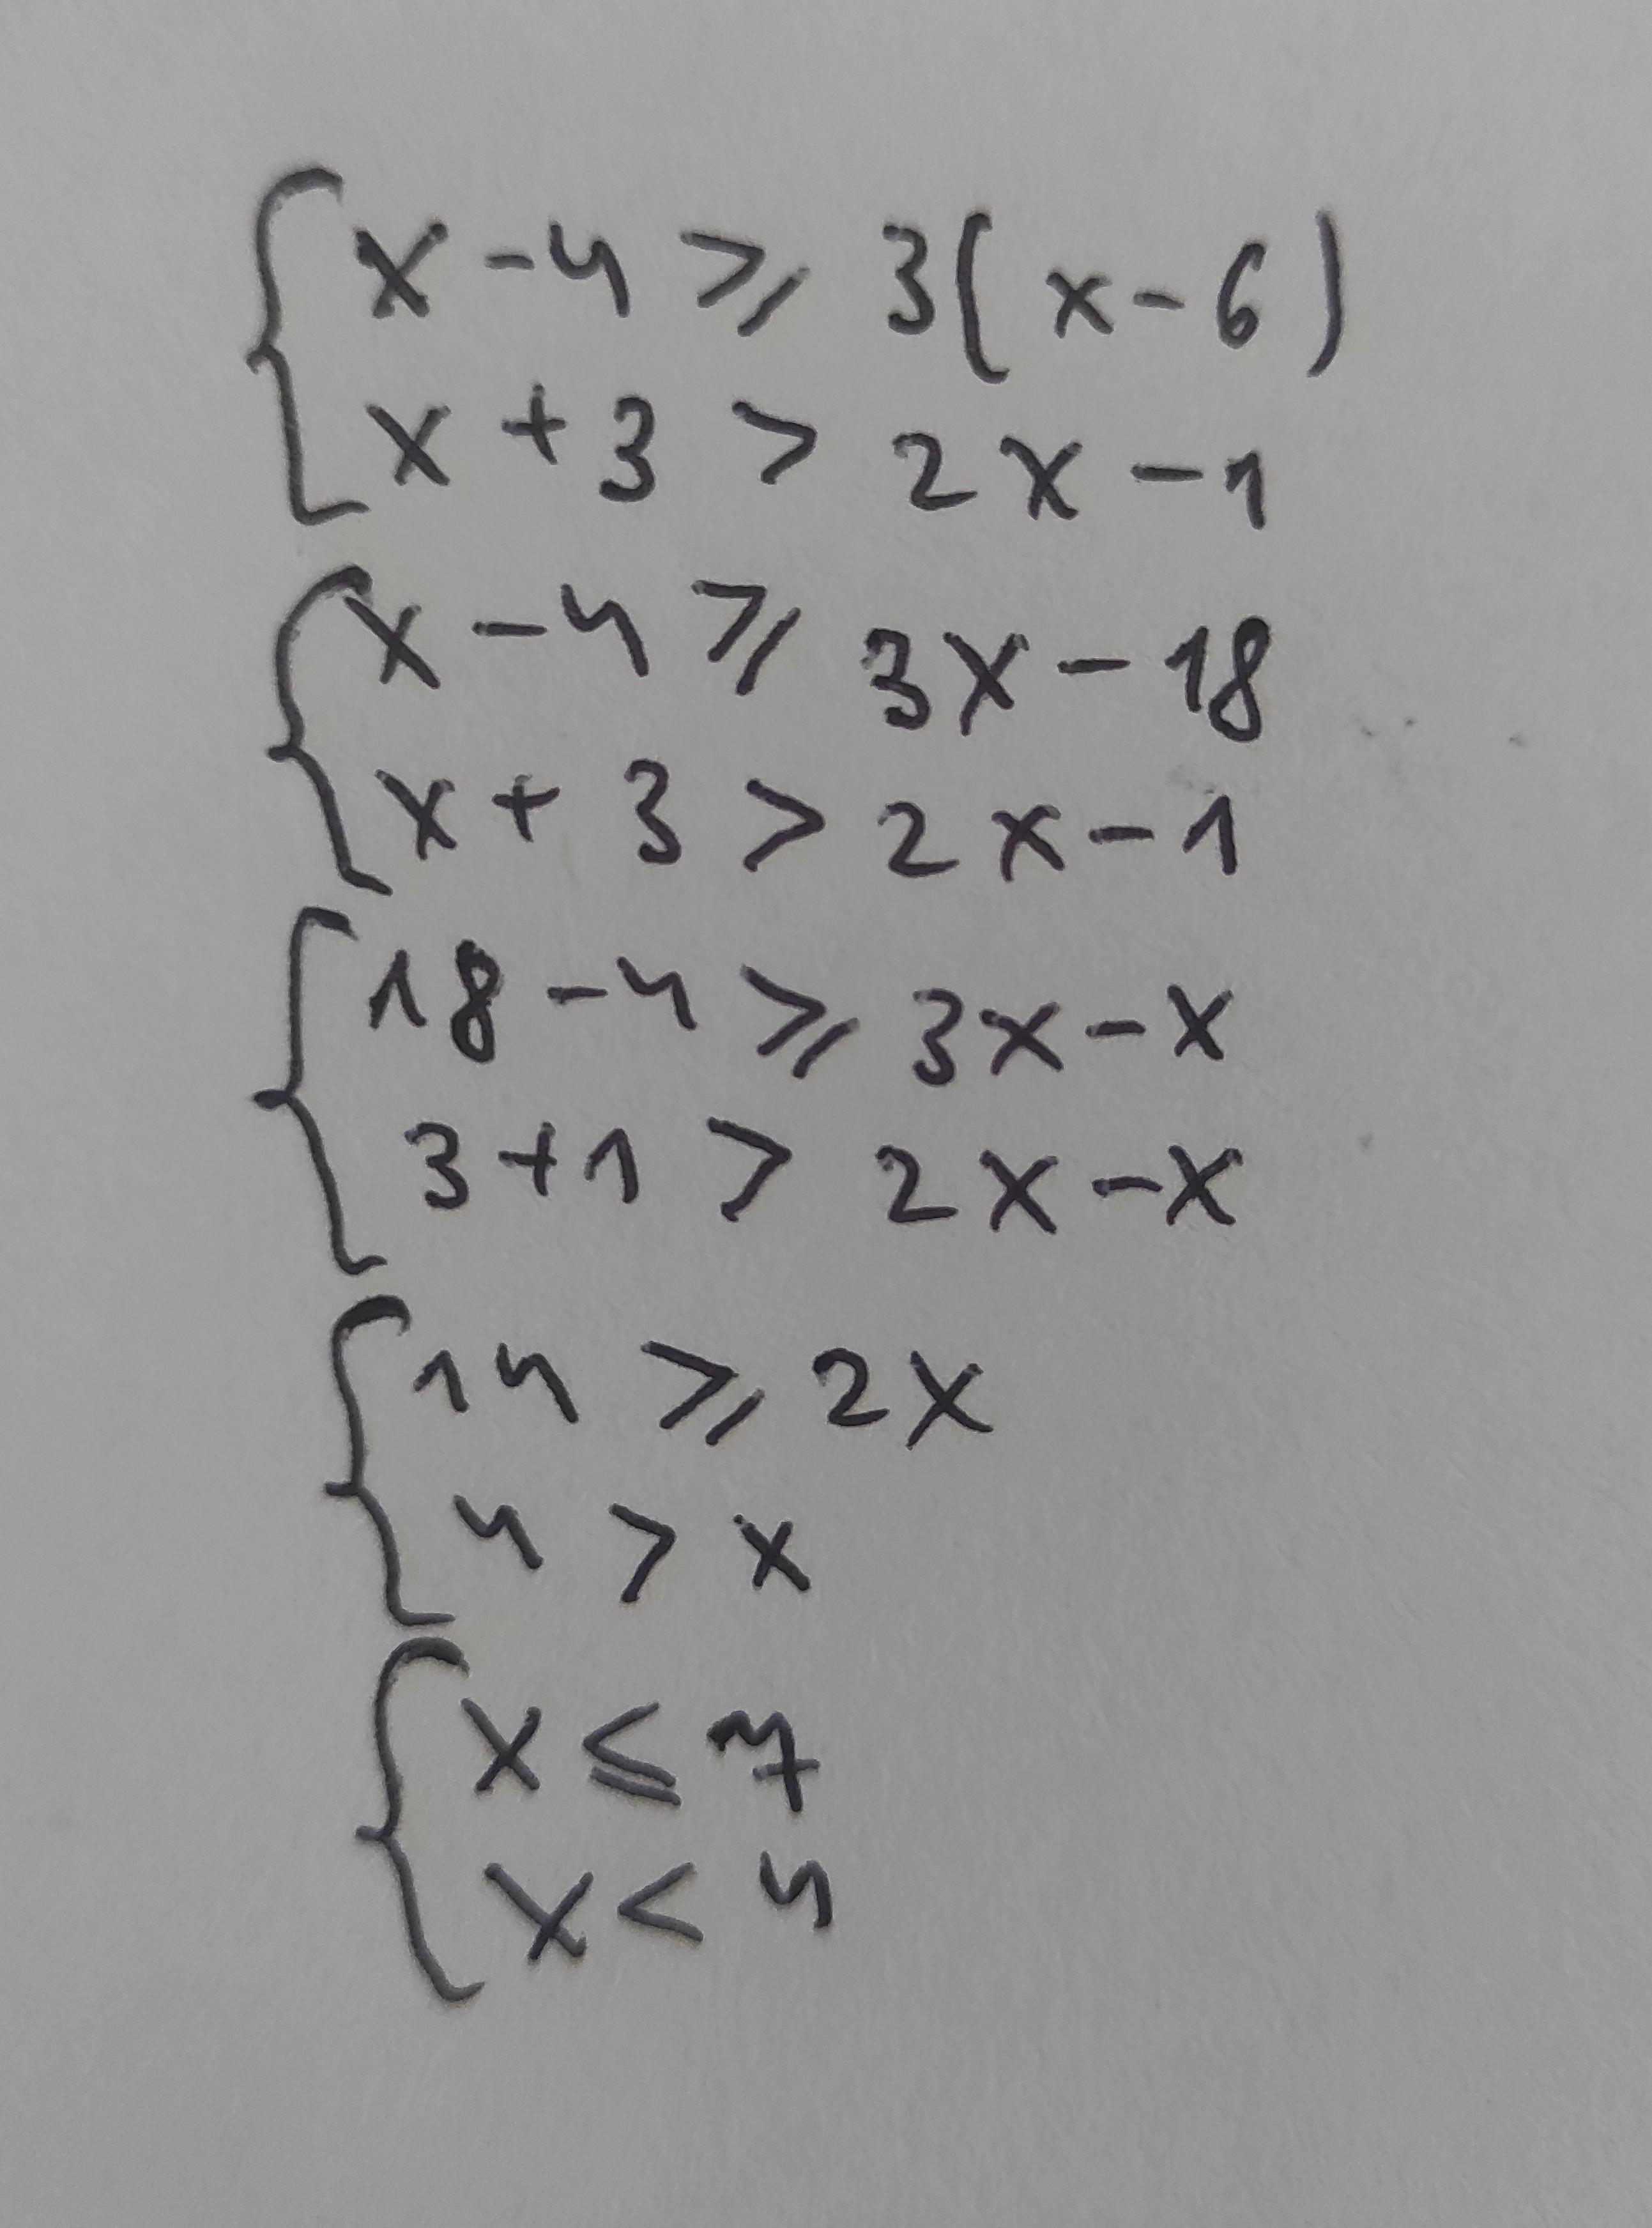 x - 4 ⩾ 3(x - 6)
x + 3 > 2x - 1
x - 4 ⩾ 3x - 18
x + 3 > 2x - 1
18 - 4 ⩾ 3x - x
3 + 1 > 2x - x
14 ⩾ 2x
4 > x
x ≤ 7
x < 4